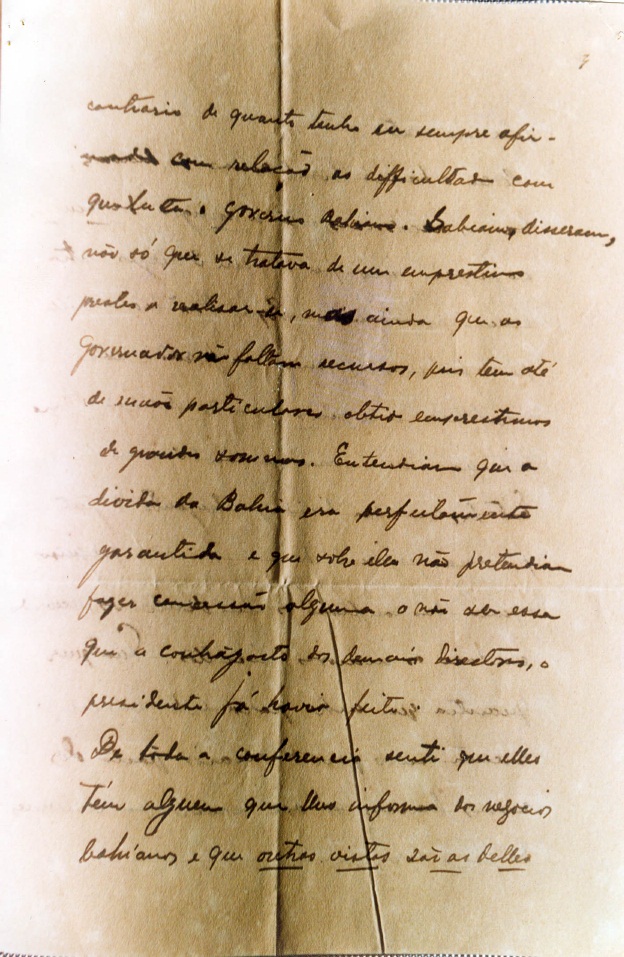 contrario de quanto tenho eu sempre afir-
mado com relação as difficuldades com
que luta o governo bahiano. Sabiam, disseram,
não só que se tratava de um emprestimo
prestes a realisar-se, mas ainda que ao
governador não faltam recursos, pois tem até
de mãos particulares obtido emprestimos
de grandes sommas. Entendiam que a
divida da Bahia era perfeitamente
garantida e que sobre ella não pretendiam
fazer concessão alguma a não ser essa
que a contragosto dos demais directores, o
presidente já havia feito.
De toda a conferencia senti que elles
têm alguem que lhes informa dos negocios
bahianos e que outras vistas são as delles